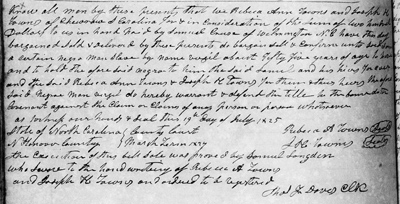 Know all men by these presents that we Rebeca Ann Towns and Joseph H
Towns of Cheraw S Carolina for & in Consideration of the sum of two hundred
Dollars to us in hand paid by Samuel of Wilmington N C have this day
bargained sold & delivered by these presents do bargain sell & Confirm unto
a certain negro man slave by name virgil about fifty five years of age to have
and to hold the aforesaid negro to him the said Samuel and his heirs forever
and the said Rebeca Ann Towns & Joseph H Towns for themselves heirs
said Negro man virgil do hereby warrant & defend the title to the
against the Claim or Claims of any person or persons whatsoever
as witness our hands & seal this 19 day of July 1825
State of North Carolina County Court Rebeca A Towns Seal
N Hanover County March Term 1827 J H Towns Seal
the Execution of this bill Sale was proved by Samuel Langdon
who swore to the hand writing of Rebeca A Towns
and Joseph H Towns and ordered to be registered
Clk